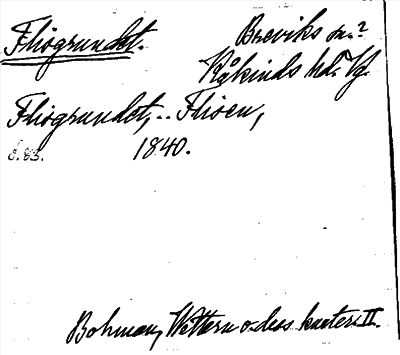 Flisgrundet. Breviks sn.?
Kåkinds hd. Vg.
Flisgrundet, .. Flisen,
s. 83. 1840.
Bohman, Wettern o. dess kuster. II.